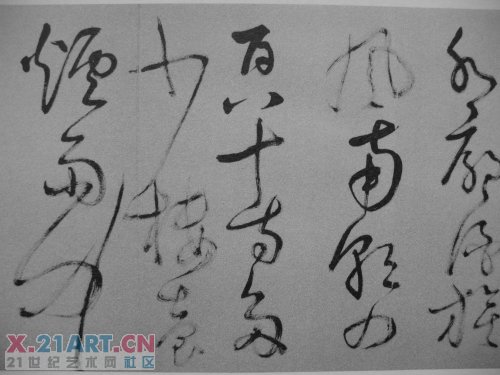 郭酒旗
風南朝四
百八十寺多
少樓臺
煙雨中
X.21ART.CN
21世纪艺术网社区